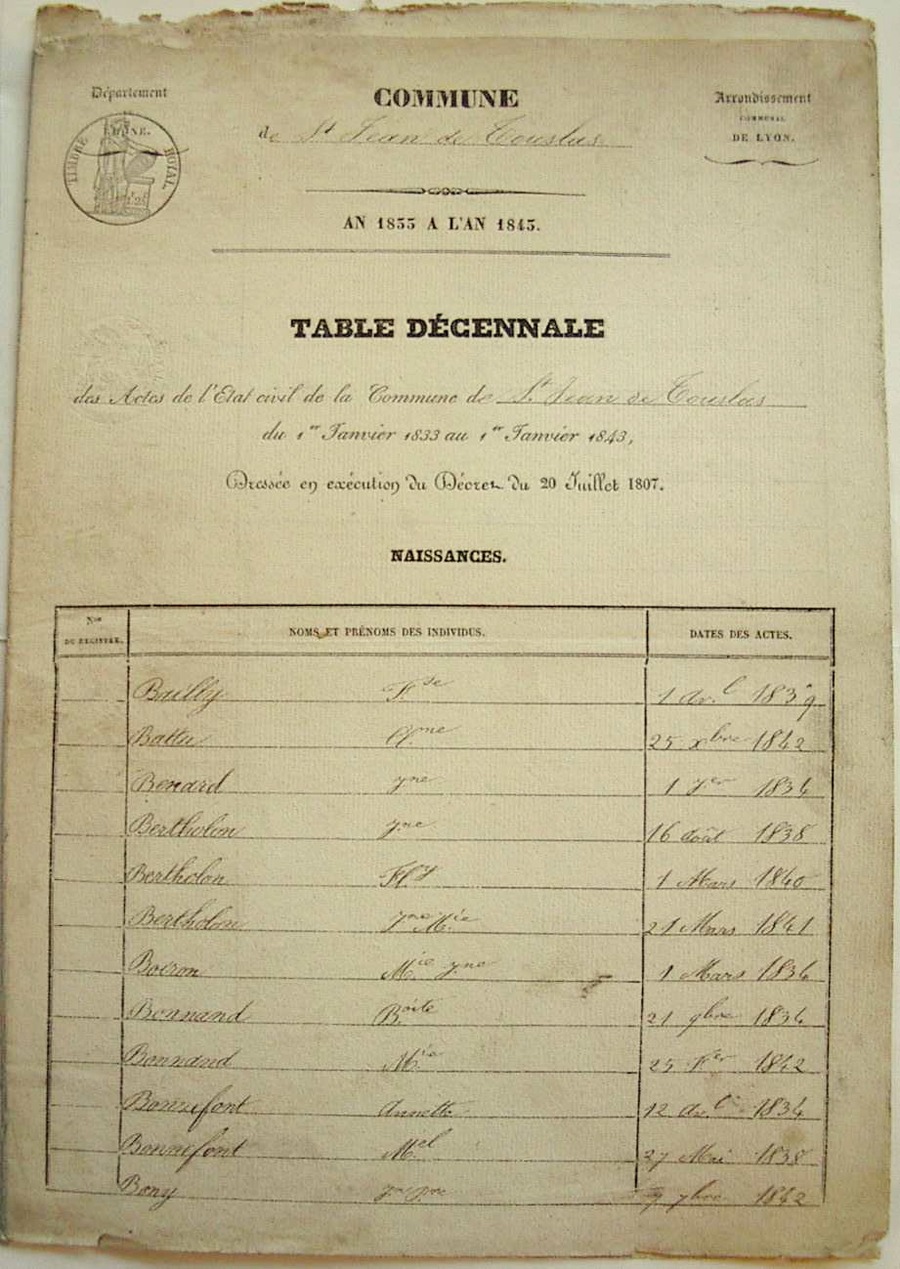 Département
RHÔNE.
TIMBRE ROYAL.
COMMUNE
de St Jean de Touslas
Arrondissement
COMMUNAL
DE LYON.
AN 1833 A L'AN 1843.
TABLE DÉCENNALE
des Actes de l'Etat civil de la Commune de St Jean de Touslas
du 1er Janvier 1833 au 1er Janvier 1843,
Dressée en exécution du Décret du 20 Juillet 1807.
NAISSANCES.
Nos DU REGISTRE. NOMS ET PRÉNOMS DES INDIVIDUS. DATES DES ACTES.
Bailly Fse 1 avl 1839
Battu 25 xbre 1842
Benard jne 1 1834
Bertholon jne 16 août 1838
Bertholon 1 Mars 1840
Bertholon jne Mie 21 Mars 1841
Boiron Mie jne 1 Mars 1834
Bonnand Boite 21 9bre 1834
Bonnand Mie 25 1842
Bonnefont Annette 12 avl 1834
Bonnefont Mel 27 Mai 1838
Bony 7bre 1842